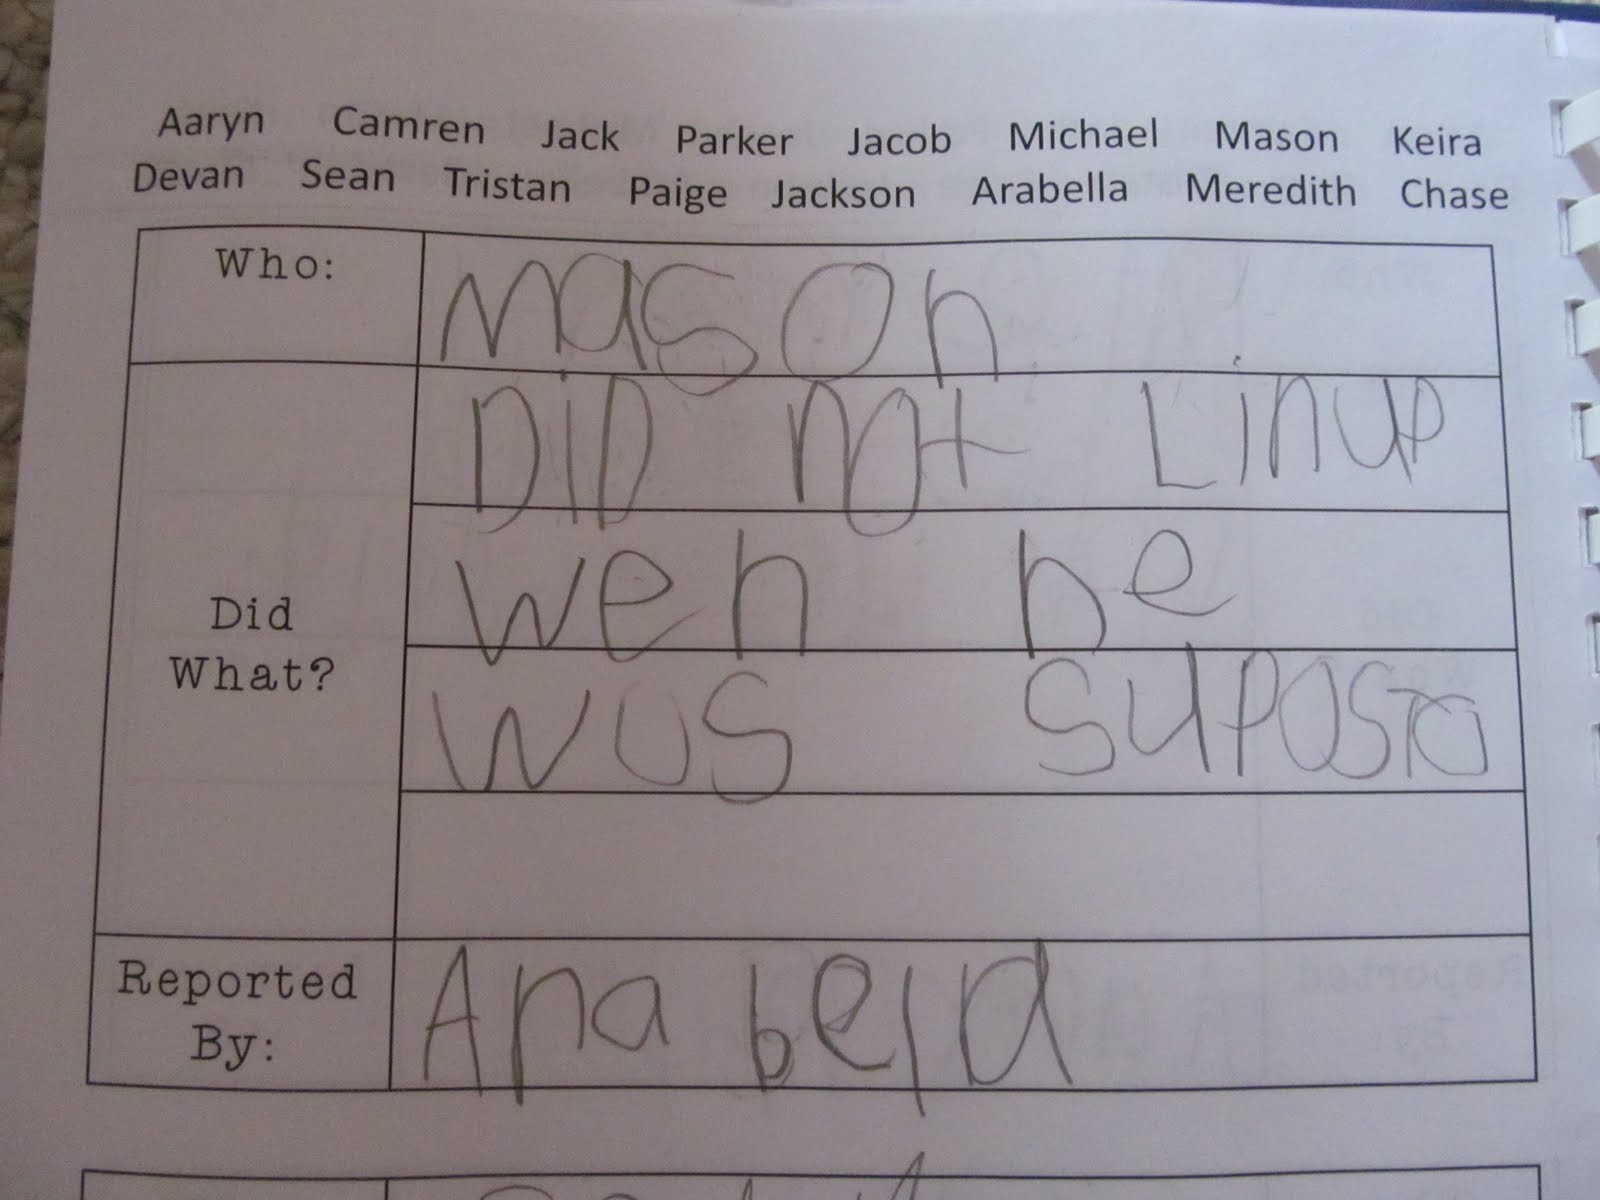 Aaryn Camren Jack Parker Jacob Michael Mason Keira
Devan Sean Tristan Paige Jackson Arabella Meredith Chase
Who: Mason
DiD not Linup
Did What? wen he
wus suposto
Reported By: Anabela